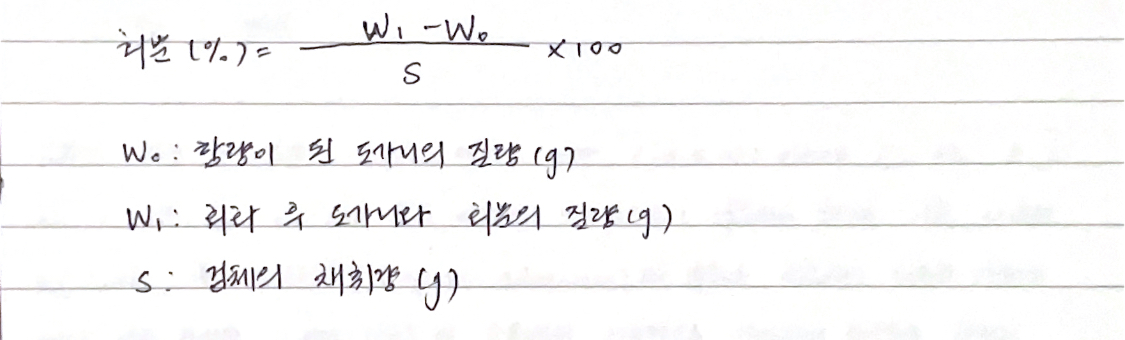 회분 (%) = (W₁ - W₀) / S × 100
W₀ : 항량이 된 도가니의 질량 (g)
W₁ : 회화 후 도가니와 회분의 질량 (g)
S : 검체의 채취량 (g)